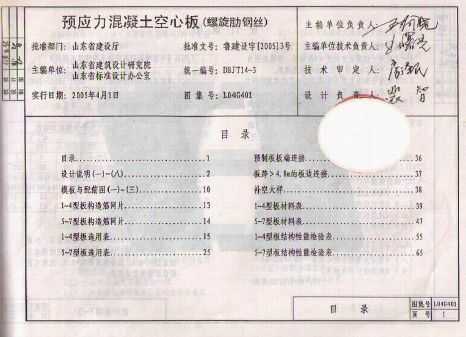 预应力混凝土空心板(螺旋肋钢丝)
批准部门: 山东省建设厅 批准文号: 鲁建设字[2005]3号
主编单位: 山东省建筑设计研究院 山东省标准设计办公室 统一编号: DBJT14-3
实行日期: 2005年4月1日 图集号: L04G401
主编单位负责人:
主编单位技术负责人:
技术审定人:
设计负责人:
目录
目录 1
设计说明(一)-(八) 2
模板与配筋图(一)-(三) 10
1-4型板构造筋网片 13
5-7型板构造筋网片 14
1-4型板选用表 15
5-7型板选用表 25
预制板板端连接 36
板跨>4.8m的板边连接 37
补空大样 38
1-4型板材料表 39
5-7型板材料表 47
1-4型板结构性能检验表 55
5-7型板结构性能检验表 65
目录 图集号 L04G401
页号 1